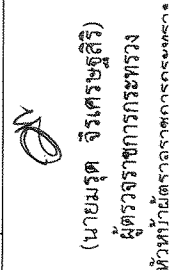 (นายมรุต จิรเศรษฐสิริ)
ผู้ตรวจราชการกระทรวง
หัวหน้าผู้ตรวจราชการกระทรวง